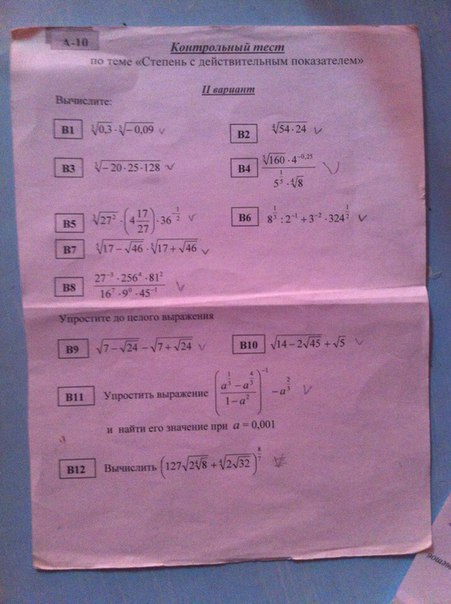 А-10
Контрольный тест
по теме «Степень с действительным показателем»
II вариант
Вычислите:
В1 ∛0,3 · ∛−0,09 В2 ∜54·24
В3 ∛−20·25·128 В4 (∜160 · 4^(−0,25)) / (5^(1/5) · ∜8)
В5 ∛27² · (4 17/27) · 36^(−1/2) В6 8^(1/3) : 2^(−1) + 3^(−2) · 324^(1/2)
В7 √17 − √46 · √17 + √46
В8 (27^(−3) · 256⁴ · 81²) / (16⁷ · 9⁰ · 45^(−1))
Упростите до целого выражения
В9 √(7 − √24) − √(7 + √24) В10 √(14 − 2√45) + √5
В11 Упростить выражение ((a^(1/3) − a^(4/3)) / (1 − a²))^(−1) − a^(2/3)
и найти его значение при a = 0,001
В12 Вычислить (127√(2∜8) + ∜(2√32))^(8/7)